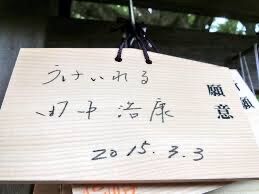 うけいれる
田中浩康
2015.3.3
願意